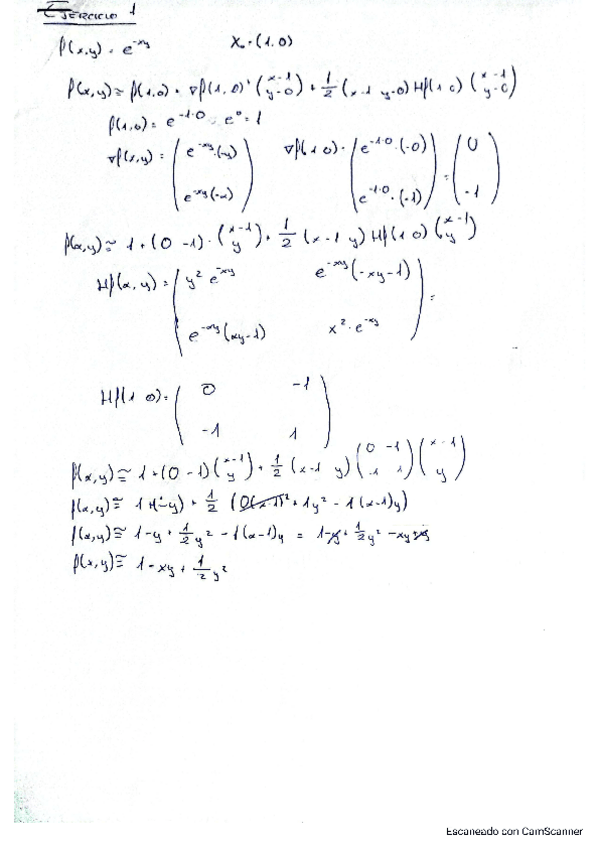 EJERCICIO 1
f(x,y) = e^{-xy}    X₀ = (1,0)
f(x,y) ≅ f(1,0) + ∇f(1,0)ᵗ (x-1 / y-0) + 1/2 (x-1 y-0) Hf(1 0) (x-1 / y-0)
f(1,0) = e^{-1·0} = e⁰ = 1
∇f(x,y) = (e^{-xy}·(-y) / e^{-xy}(-x))    ∇f(1 0) = (e^{-1·0}·(-0) / e^{-1·0}·(-1)) = (0 / -1)
f(x,y) ≅ 1 + (0 -1)·(x-1 / y) + 1/2 (x-1 y) Hf(1 0) (x-1 / y)
Hf(x,y) = (y² e^{-xy}    e^{-xy}(-xy-1) / e^{-xy}(xy-1)    x²·e^{-xy}) =
Hf(1 0) = (0    -1 / -1    1)
f(x,y) ≅ 1 + (0 -1) (x-1 / y) + 1/2 (x-1 y) (0 -1 / -1 1) (x-1 / y)
f(x,y) ≅ 1 + (-y) + 1/2 (0(x-1)² + 1y² - 1(x-1)y)
f(x,y) ≅ 1-y + 1/2 y² - 1(x-1)y = 1-y + 1/2 y² - xy + y
f(x,y) ≅ 1 - xy + 1/2 y²
Escaneado con CamScanner